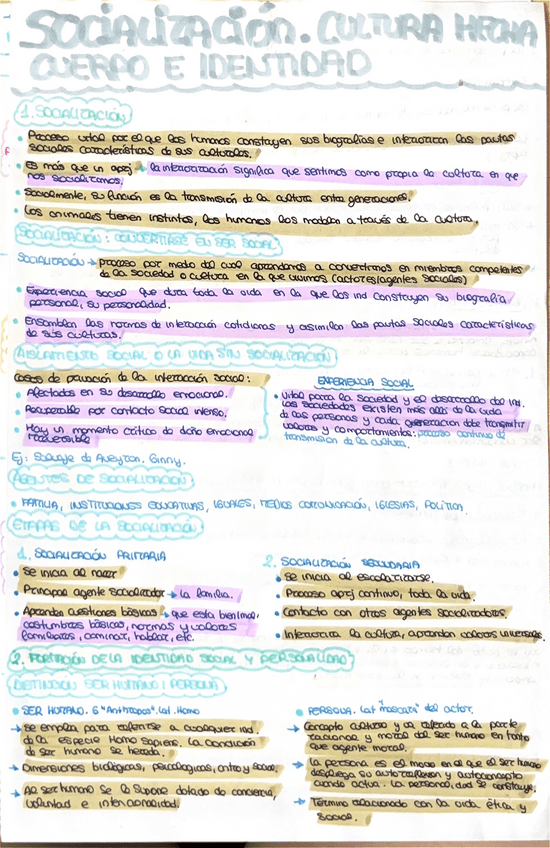 SOCIALIZACIÓN. CULTURA HECHA
CUERPO E IDENTIDAD
1. SOCIALIZACIÓN
• Proceso vital por el que los humanos construyen sus biografías e interiorizan las pautas
sociales características de sus culturales.
• Es más que un apzj → la interiorización significa que sentimos como propia la cultura en que
nos socializamos.
• Socialmente, su función es la transmisión de la cultura entre generaciones.
• Los animales tienen instintos, los humanos los modelan a través de la cultura.
SOCIALIZACIÓN: CONVERTIRSE EN SER SOCIAL
SOCIALIZACIÓN → proceso por medio del cual aprendemos a convertirnos en miembros competentes
de la sociedad o cultura en la que vivimos (actores/agentes sociales)
• Experiencia social que dura toda la vida en la que los ind construyen su biografía
personal, su personalidad.
• Ensamblan las normas de interacción cotidianas y asimilan las pautas sociales características
de sus culturas.
AISLAMIENTO SOCIAL O LA VIDA SIN SOCIALIZACIÓN
Casos de privación de la interacción social:
• Afectados en su desarrollo emocional.
• Recuperable por contacto social intenso.
• Hay un momento crítico de daño emocional
irreversible
EXPERIENCIA SOCIAL
• Vital para la sociedad y el desarrollo del ind.
Las sociedades existen más allá de la vida
de las personas y cada generación debe transmitir
valores y comportamientos: proceso continuo de
transmisión de la cultura.
Ej: Salvaje de Aveyron. Ginny.
AGENTES DE SOCIALIZACIÓN
• FAMILIA, INSTITUCIONES EDUCATIVAS, IGUALES, MEDIOS COMUNICACIÓN, IGLESIAS, POLÍTICA.
ETAPAS DE LA SOCIALIZACIÓN
1. SOCIALIZACIÓN PRIMARIA
• Se inicia al nacer
• Principal agente socializador → la familia.
• Aprenden cuestiones básicas → que esta bien/mal,
costumbres básicas, normas y valores
familiares, caminar, hablar, etc.
2. SOCIALIZACIÓN SECUNDARIA
• Se inicia al escolarizarse.
• Proceso aprzj continuo, toda la vida.
• Contacto con otros agentes socializadores.
• Interioriza la cultura, aprenden valores universales.
2. FORMACIÓN DE LA IDENTIDAD SOCIAL Y PERSONALIDAD
DISTINCIÓN SER HUMANO / PERSONA
• SER HUMANO. G "Anthropos". Lat. Homo
→ Se emplea para referirse a cualquier ind.
de la especie Homo Sapiens. La condición
de ser humano se hereda.
→ Dimensiones biológicas, psicológicas, antro y social.
→ Al ser humano se le supone dotado de conciencia,
voluntad e intencionalidad.
• PERSONA. Lat "máscara" del actor.
→ Concepto cultural y va referido a la parte
racional y moral del ser humano en tanto
que agente moral.
→ La persona es el modo en el que el ser humano
despliega su autorreflexión y autoconcepto
cuando actúa. La personalidad se construye.
→ Término relacionado con la vida ética y
social.